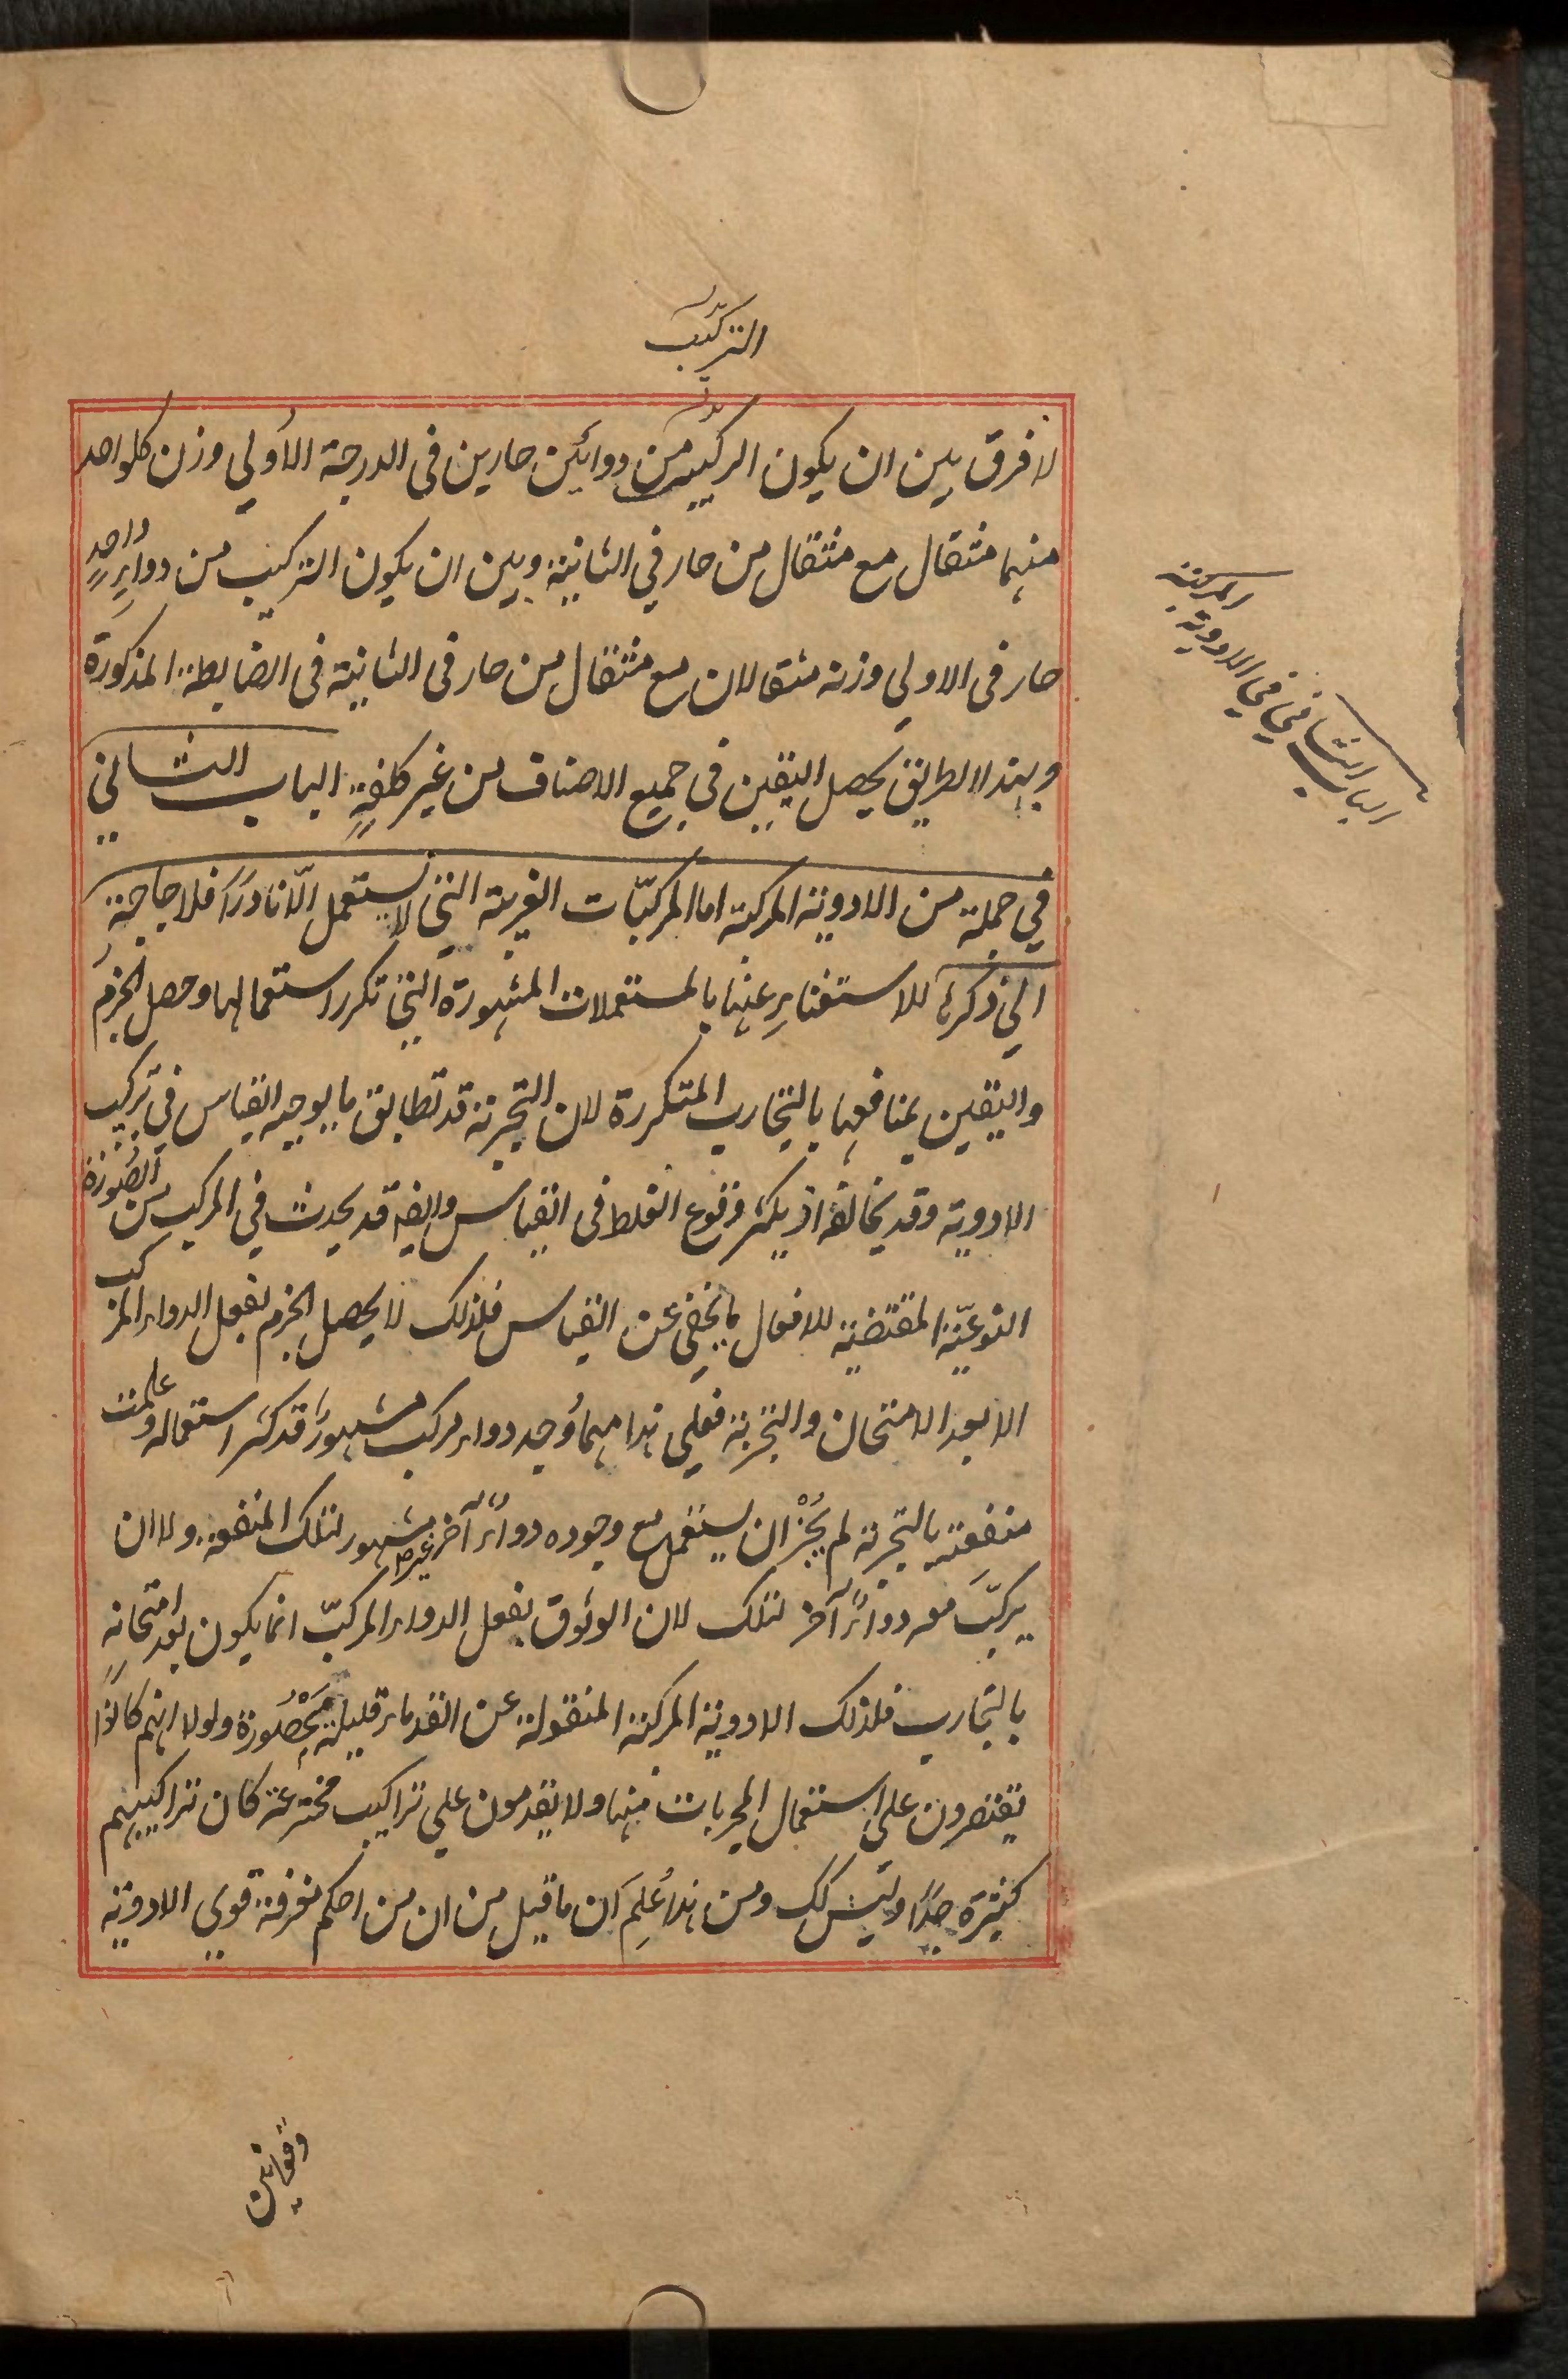 التركيب
لا فرق بين ان يكون الركيب من دوائين حارين فى الدرجة الأولي وزن كلواحد
منهما مثقال مع مثقال من حار في الثانية وبين ان يكون التركيب من دواءٍ واحدٍ
حار فى الاولي وزنه مثقالان مع مثقال من حار فى الثانية فى الضابطة المذكورة
وبهذا الطريق يحصل اليقين في جميع الاصناف من غير كلفةٍ الباب الثاني
في جملة من الادوية المركبة اما المركبّات الغريبة التي لا يستعمل الّا نادرًا فلا حاجة
الي ذكرها للاستغناء عنها بالمستعملات المشهورة التي تكرر استعمالها وحصل الجزمُ
واليقين بمنافعها بالتجارب المتكررة لان التجربة قد تطابق ما يوجبه القياس في تركيب
الادوية وقد يخالفه اذ يكثر وقوع الغلط فى القياس وايضه قد يحدث في المركب من الصُورة
النوعيّة المقتضية للافعال ما يخفي عن القياس فلذلك لا يحصل الجزم بفعل الدواء المركب
الا بعد الامتحان والتجربة فعلي هذا مهما وُجد دواء مركب مشهورًا قد كثر استعماله وعلمت
منفعته بالتجربة لم يَجُزْ ان يستعمل مع وجوده دواءٌ آخر غير مشهور لتلك المنفعة ولا ان
يركبّ معه دواءٌ آخر لتلك لان الوثوق بفعل الدواء المركبّ انما يكون بعد امتحانهِ
بالتجارب فلذلك الادوية المركبة المنقولة عن القدماء قليلة مَحْصُورة ولولا انهم كانوا
يقتصرون علي استعمال المجربات منها ولا يقدمون علي تراكيب مخترعة كان تراكيبهم
كثيرة جدًا وليس كك ومن هذا عُلِمَ ان ما قيل من ان من احكم معرفة قوي الادوية
وقوانين
الباب الثاني في الادوية
المركبة